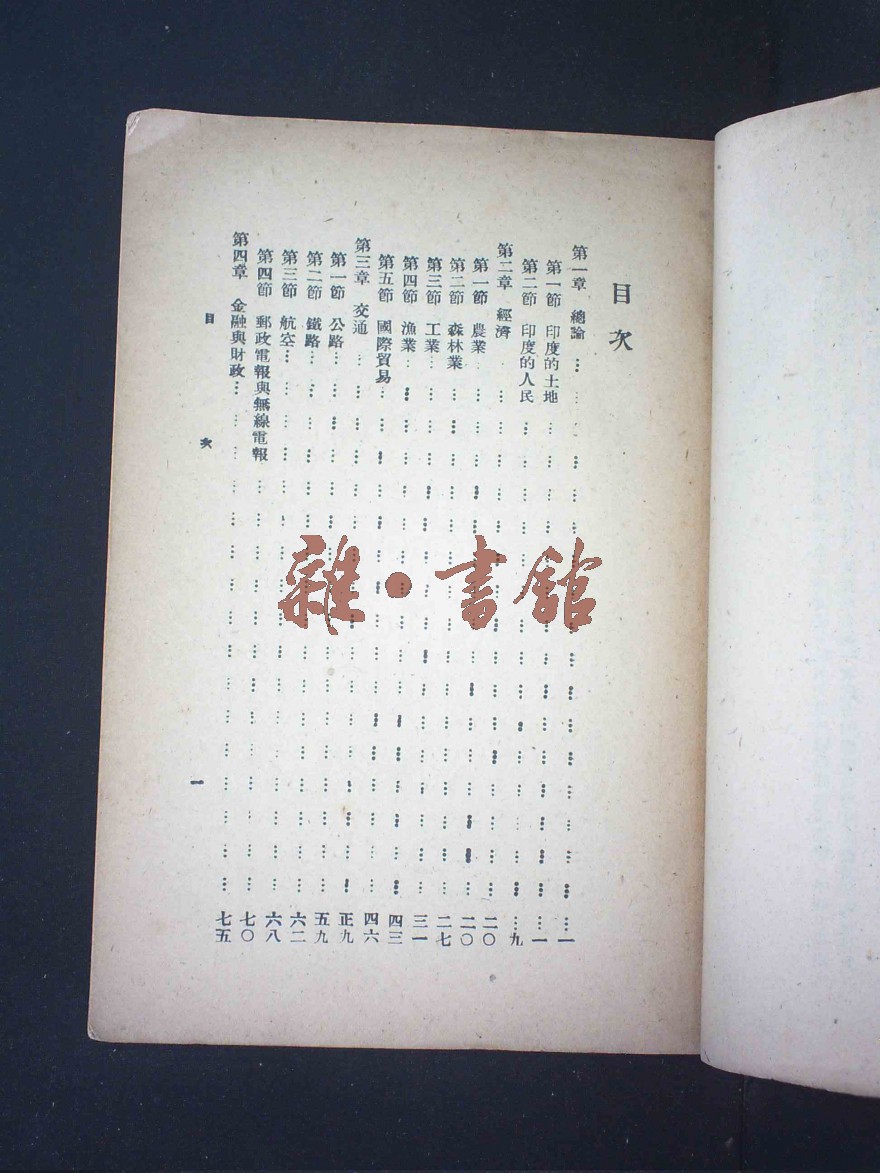 目次
第一章 總論 …… 一
第一節 印度的土地 …… 一
第二節 印度的人民 …… 九
第二章 經濟 …… 二〇
第一節 農業 …… 二〇
第二節 森林業 …… 二七
第三節 工業 …… 三一
第四節 漁業 …… 四三
第五節 國際貿易 …… 四六
第三章 交通 …… 正九
第一節 公路 …… 五九
第二節 鐵路 …… 六二
第三節 航空 …… 六八
第四節 郵政電報與無線電報 …… 七〇
第四章 金融與財政 …… 七五
目次 一
雜·書館